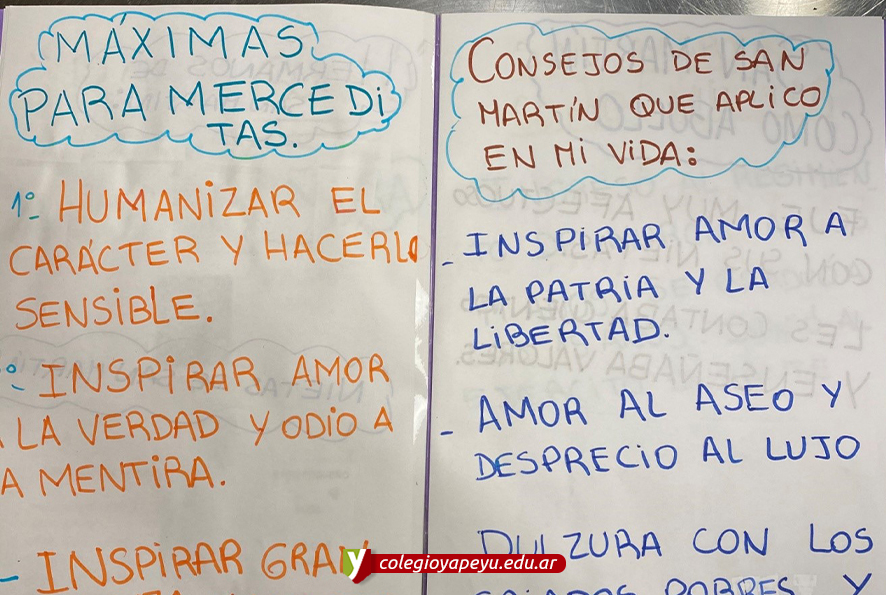 MÁXIMAS
PARA MERCEDi
TAS.
1º- HUMANiZAR EL
CARÁCTER Y HACERLO
SENSiBLE.
º INSPiRAR AMOR
A LA VERDAD Y ODIO A
A MENTiRA.
- INSPiRAR GRAN
CONSEJOS DE SAN
MARTÍN QUE APLICO
EN Mi ViDA:
- INSPiRAR AMOR A
LA PATRiA Y LA
LiBERTAD.
- AMOR AL ASEO Y
DESPRECiO AL LUJO
DULZURA CON LOS
CRiADOS POBRES Y
y colegioyapeyu.edu.ar